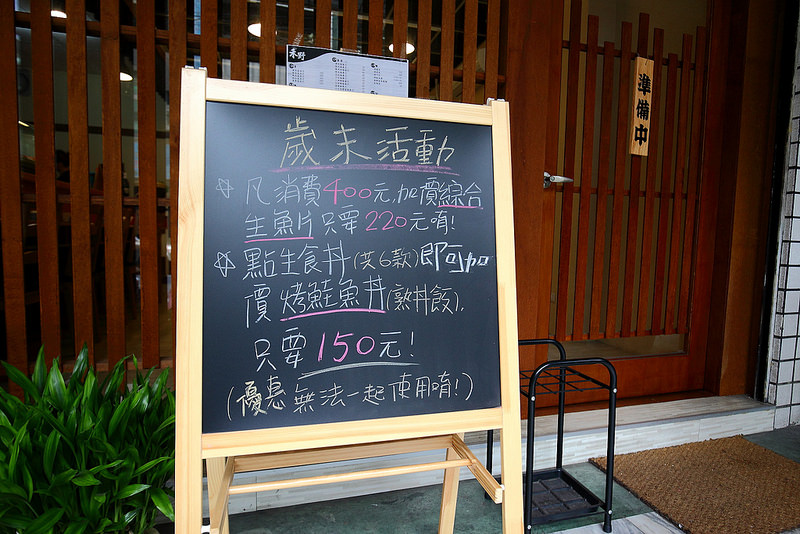 禾野
準備中
歲末活動
☆ 凡消費400元,加價綜合
生魚片只要220元唷!
☆ 點生食丼(共6款)即可加
價烤鮭魚丼(熟丼飯),
只要150元!
(優惠無法一起使用唷!)